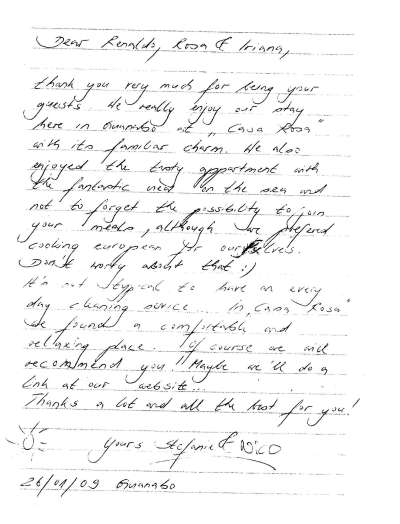 Dear Renaldo, Rosa & Iriana,
thank you very much for being your
guests. We really enjoy our stay
here in Guanabo at „Casa Rosa"
with its familiar charm. We also
enjoyed the tasty appartment with
the fantastic view on the sea and
not to forget the possibility to join
your meals, although we prefered
cooking european for ourselves.
Don't worry about that :)
It's not typical to have an every
day cleaning service... in „Casa Rosa"
we found a comfortable and
rellaxing place. Of course we will
recommend you! Maybe we'll do a
link at our website...
Thanks a lot and all the best for you!
Yours Stefanie & Nico
26/01/09 Guanabo